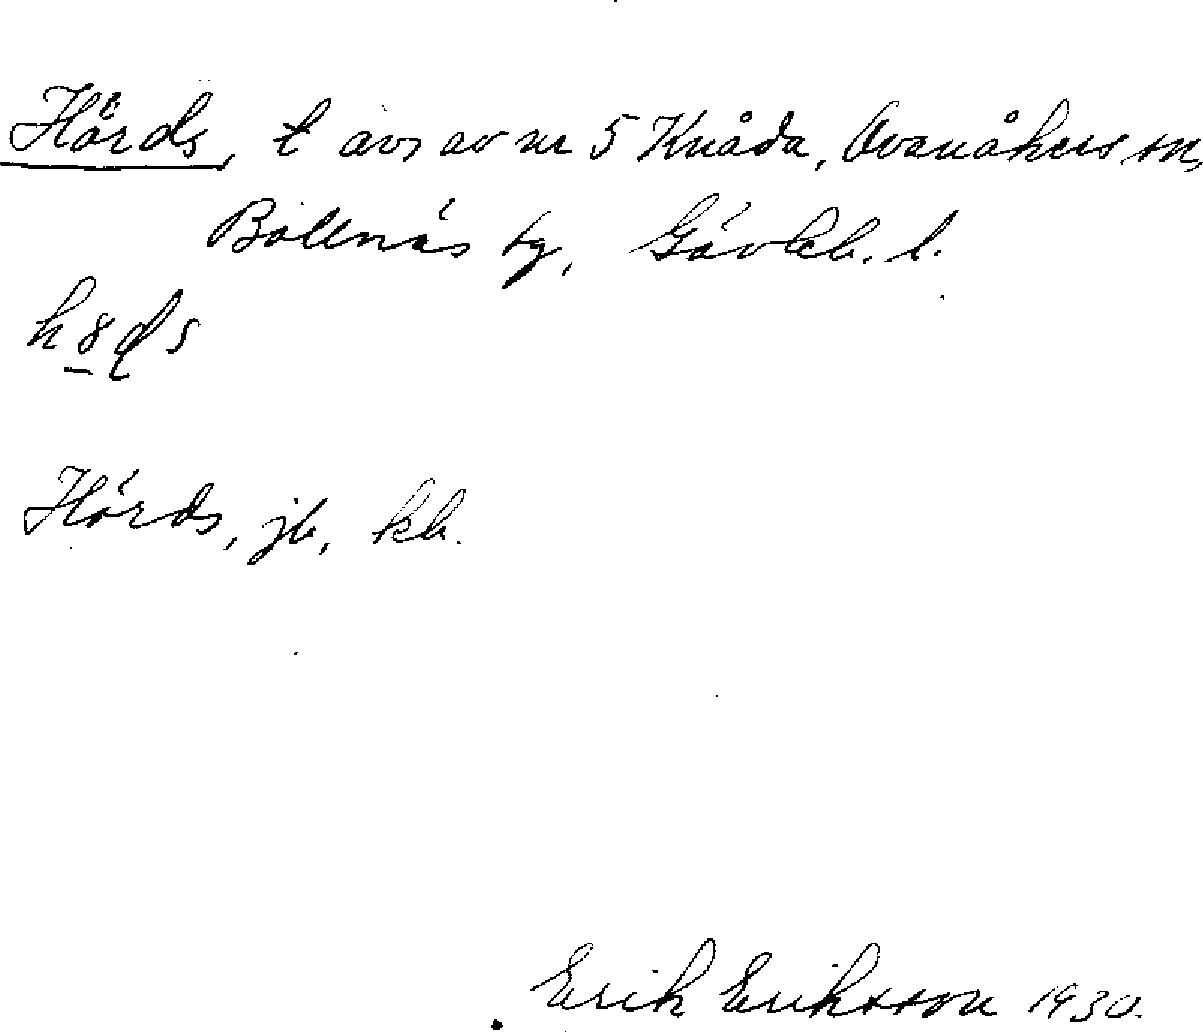 Hårds, t avs av nr 5 Knåda, Ovanåkers sn,
Bollnäs tg, Gävleb. l.
h8ds
Hårds, jb, kb.
Erik Eriksson 1930.